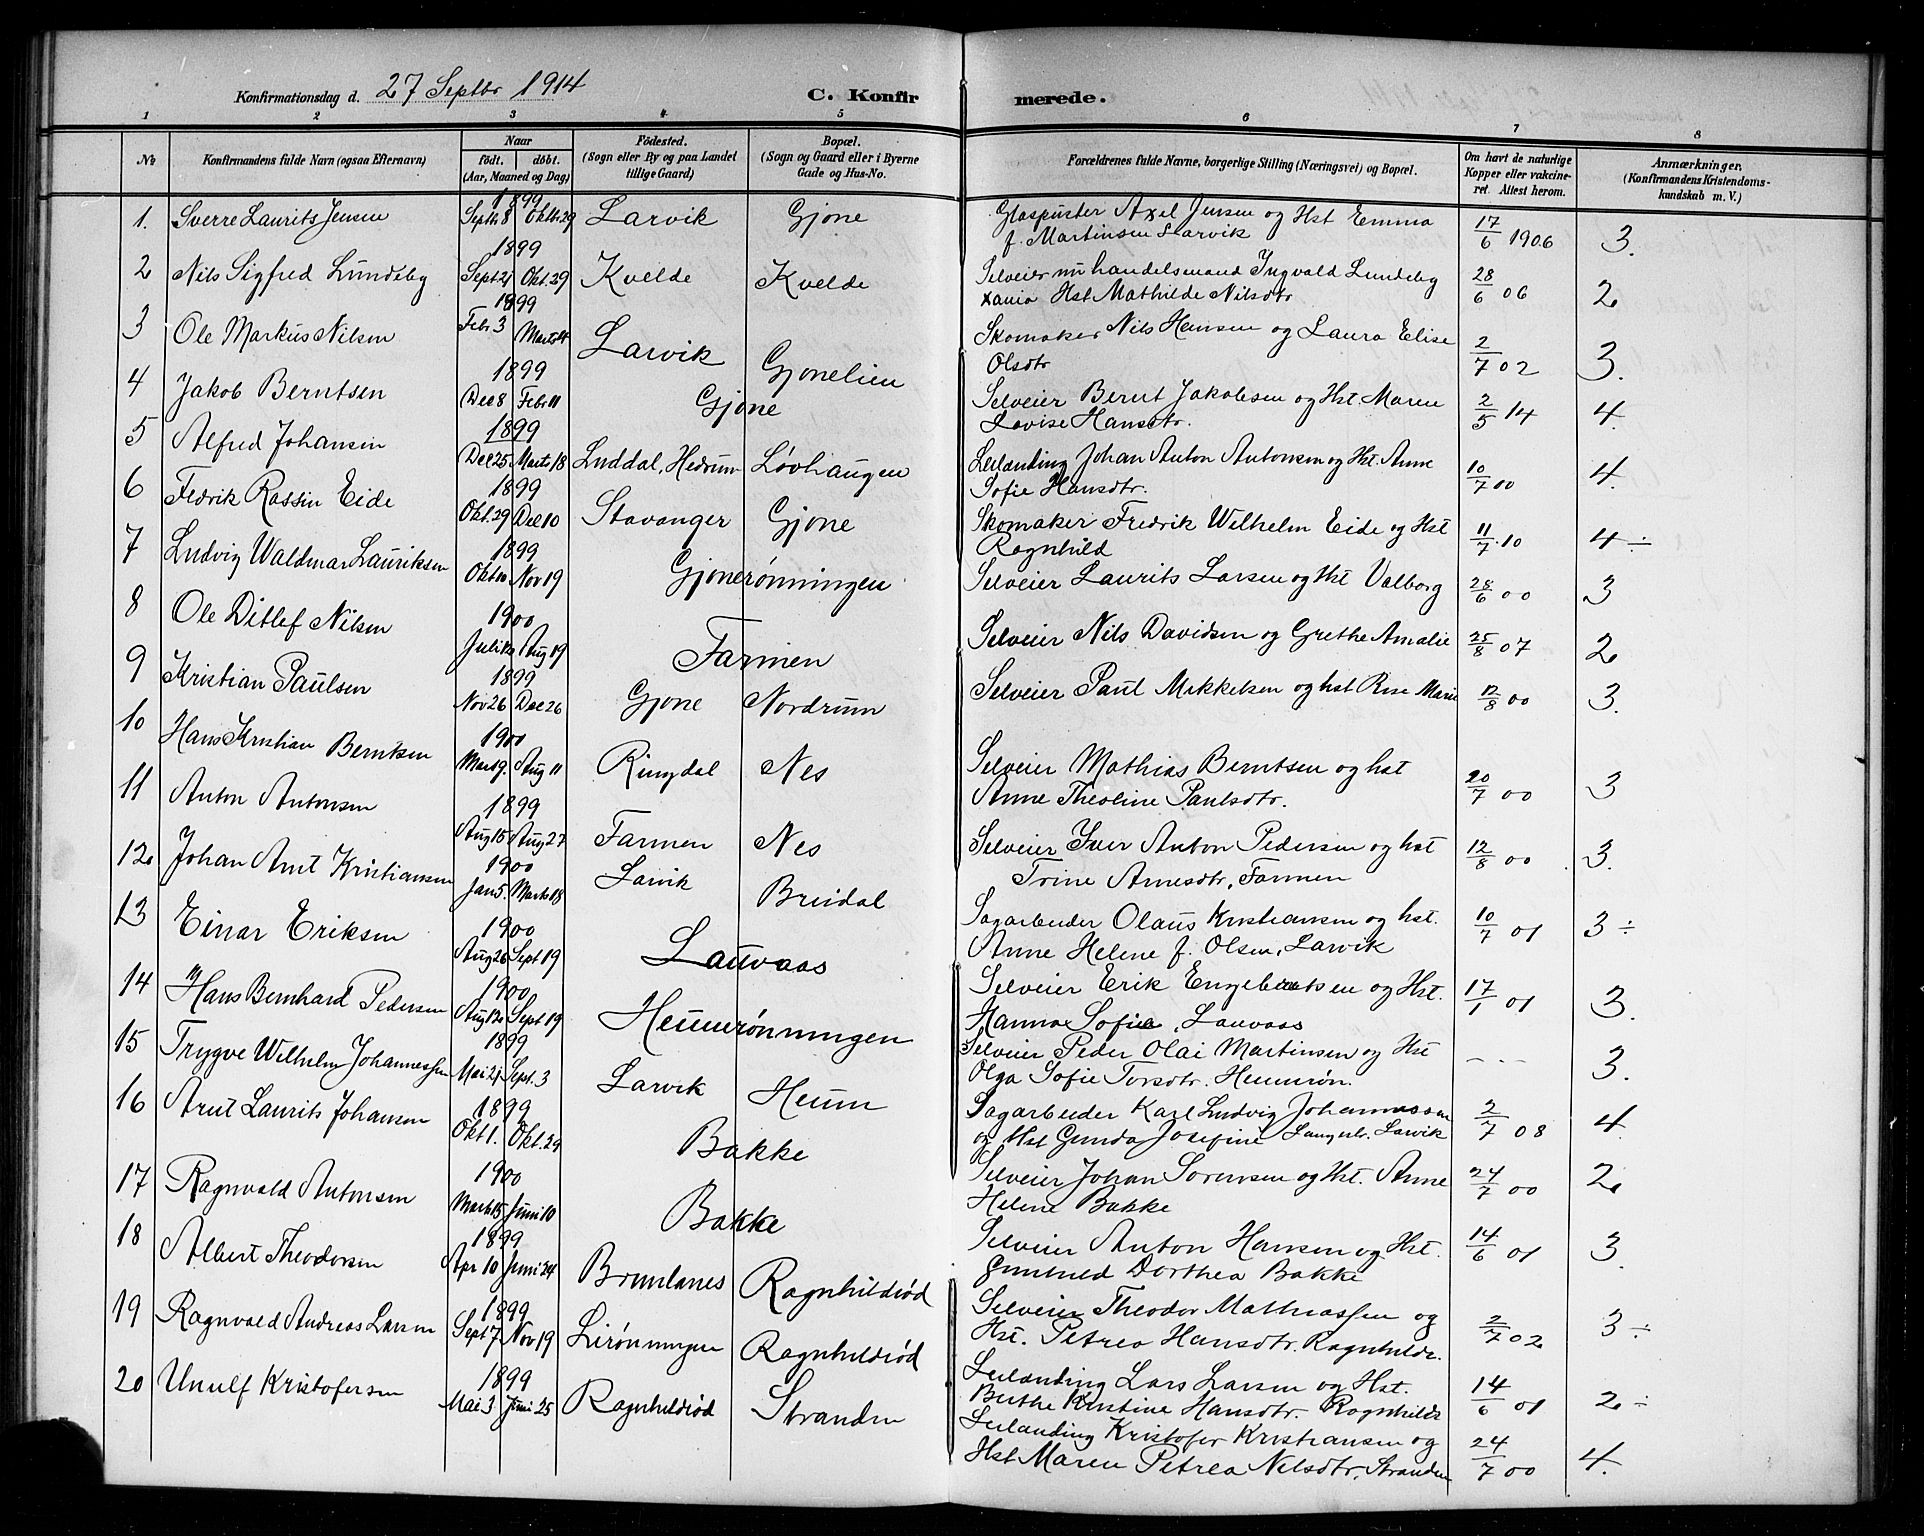 Konfirmationsdag d. 27 Septbr 1914
C. Konfirmerede.
1 2 3 4 5 6 7 8
No
Konfirmandens fulde Navn (ogsaa Efternavn)
Naar født. døbt. (Aar, Maaned og Dag)
Fødested. (Sogn eller By og paa Landet tillige Gaard)
Bopæl. (Sogn og Gaard eller i Byerne Gade og Hus-No.
Forældrenes fulde Navne, borgerlige Stilling (Næringsvei) og Bopæl.
Om havt de naturlige Kopper eller vakcineret. Attest herom.
Anmærkninger. (Konfirmandens Kristendomskundskab m. V.)
1. Sverre Laurits Jensen 1899 Septb 8 Oktb 29 Larvik Gjone Glaspuster Axel Jensen og Hst Emma
f. Martinsen Larvik 17/6 1906 3.
2 Nils Sigfred Lundeby 1899 Sept 21 Okt. 29 Kvelde Kvelde Selveier nu handelsmand Ingvald Lundeby
Xania Hst Mathilde Nilsdtr 28/6 06 2
3 Ole Markus Nilsen 1899 Febr 3 Larvik Gjonelien Skomaker Nils Hansen og Laura Elise
Olsdtr 2/7 02 3.
4 Jakob Berntsen 1899 Dec 8 Febr 11 Gjone Selveier Bernt Jakobsen og Hst. Maren
Lovise Hansdtr. 2/5 14 4.
5 Alfred Johansen 1899 Dec 25 Marts 18 Luddal, Hedrum Løvhaugen Leilænding Johan Anton Antonsen og Hst. Anne
Sofie Hansdtr. 10/7 00 4.
6 Fedrik Rassin Eide 1899 Okt. 29 Dec 10 Stavanger Gjone Skomaker Fredrik Wilhelm Eide og Hst
Ragnhild 11/7 10 4 ÷
7 Ludvig Waldmar Lauriksen 1899 Nov 19 Gjonerønningen Selveier Laurits Larsen og Hst Valborg 28/6 00 3
8 Ole Ditlef Nilsen 1900 Aug 19 Farmen Selveier Nils Davidsen og Grethe Amalie 25/8 07 2
9 Kristian Paulsen 1899 Nov 26 Dec 26 Gjone Nordrum Selveier Paul Mikkelsen og hst Rise Marie 12/8 00 3.
10 Hans Kristian Berntsen 1900 Mart 9. Aug 11 Ringdal Nes Selveier Mathias Berntsen og hst
Anne Theoline Paulsdtr. 20/7 00 3
11 Anton Antonsen 1899 Aug 15 Aug 27 Farmen Nes Selveier Iver Anton Pedersen og hst
Trine Arnesdtr, Farmen 12/8 00 3.
12 Johan Arnt Kristiansen 1900 Jan 5. Marts 18 Larvik Breidal Sagarbeider Olaus Kristiansen og hst.
Anne Helene f. Olsen, Larvik 10/7 01 3 ÷
13 Einar Eriksen 1900 Aug 26 Sept 19 Lauvaas Selveier Erik Engebretsen og Hst.
Hanna Sofie, Lauvaas 17/1 01 3.
14 Hans Bernhard Pedersen 1900 Sept 19 Heumrønningen Selveier Peder Olai Martinsen og Hst
Olga Sofie Torsdtr. Heumrøn. - - - 3.
15 Trygve Wilhelm Johannessen 1899 Mai 21 Sept. 3 Larvik Heum Sagarbeider Karl Ludvig Johannessen
og Hst Gunda Josefine Langestr. Larvik 2/7 08 4.
16 Arnt Laurits Johansen 1899 Okt 1. Okt. 29 Bakke Selveier Johan Sørensen og Hst. Anne
Helene Bakke 24/7 00 2
17 Ragnvald Antonsen 1900 Marts 15 Juni 10 Bakke Selveier Anton Hansen og Hst.
Gunhild Dorthea Bakke 14/6 01 3.
18 Albert Theodorsen 1899 Apr 10 Juni 24 Brunlanes Ragnhildrød Selveier Theodor Mathiassen og
Hst. Petrea Hansdtr. Ragnhildr. 2/7 02 3 ÷
19 Ragnvald Andreas Larsen 1899 Sept 7 Nov 19 Lirønningen Ragnhildrød Leilænding Lars Larsen og Hst.
Berthe Kristine Hansdtr. Ragnhildr 14/6 01 2 ÷
20 Unulf Kristofersen 1899 Mai 3 Juni 25 Ragnhildrød Stranden Leilænding Kristofer Kristiansen og
Hst Maren Petrea Nilsdtr, Stranden 24/7 00 4.